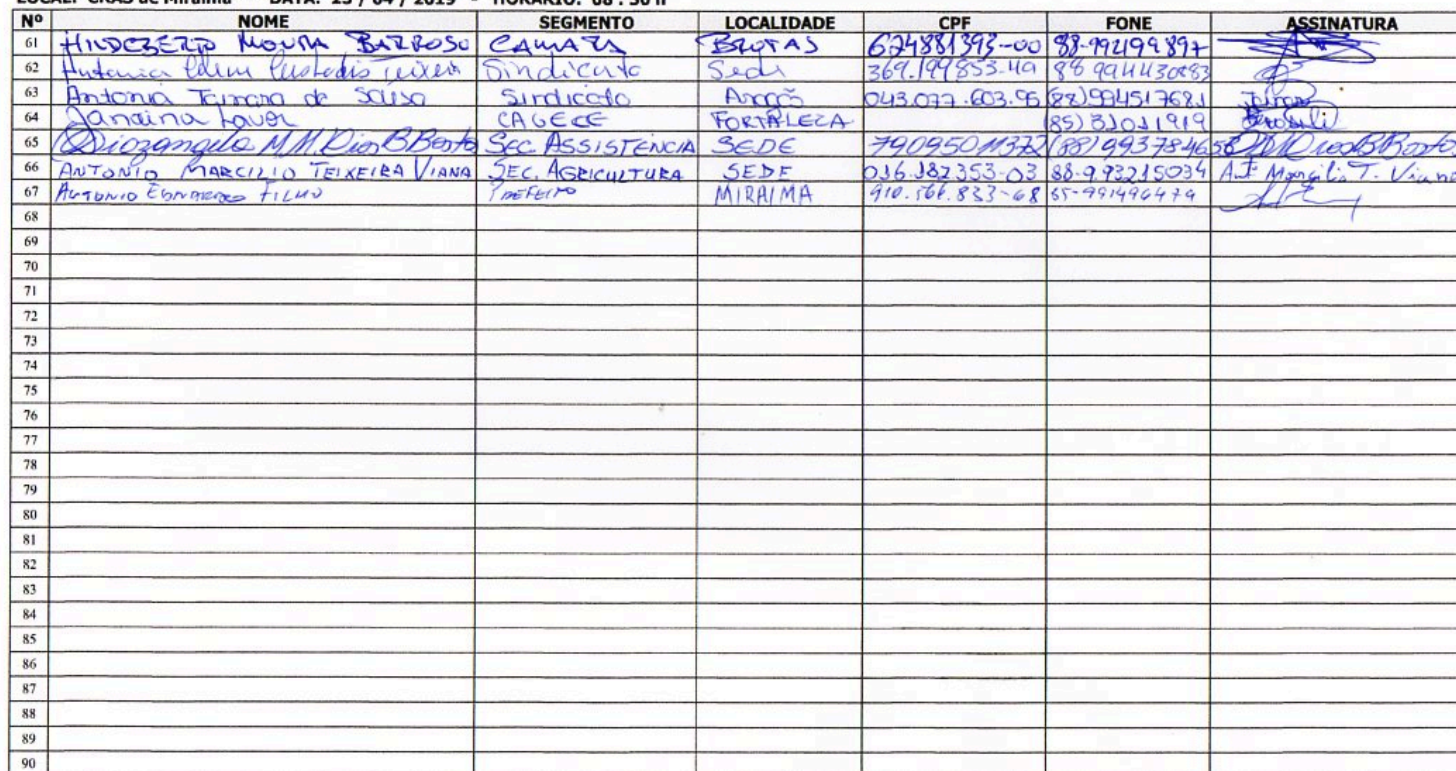 LOCAL: CRAS de Miraíma DATA: 25 / 04 / 2019 - HORÁRIO: 08 : 30 h
Nº NOME SEGMENTO LOCALIDADE CPF FONE ASSINATURA
61 HILDEZERTO MOURA BARROSO CAMARA BROTAS 624881393-00 88-992199897
62 Antonia Sindicato Sede 369.199853-49 88 994430883
63 Antonia Tamara de Sousa Sindicato 043.077.603.95 (88)994517681
64 Janaina CAGECE FORTALEZA (85) 31011919
65 Diozangela M.M. Dias B. Bento SEC ASSISTENCIA SEDE 79095011372 (88)
66 ANTONIO MARCILIO TEIXEIRA VIANA SEC. AGRICULTURA SEDE 016.182353-03 88-9.93215034 Ant Marcilio T. Viana
67 ANTONIO FILHO PREFEITO MIRAIMA 910.566.833-68 85-991496474
68
69
70
71
72
73
74
75
76
77
78
79
80
81
82
83
84
85
86
87
88
89
90